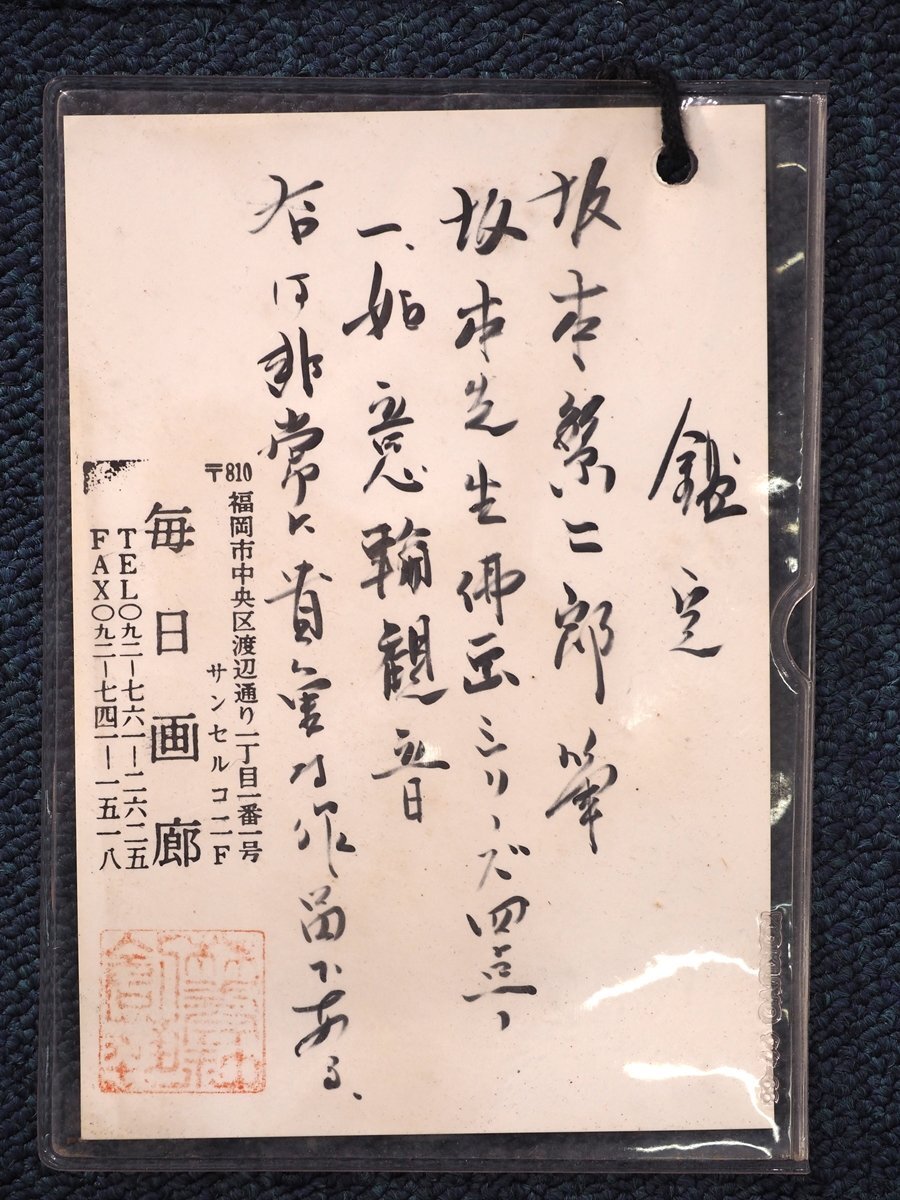 鑑定
坂本繁二郎筆
坂本先生佛画シリーズ四点ノ
一、如意輪観音
右は非常に貴重な作品である、
〒810
福岡市中央区渡辺通り一丁目一番一号
サンセルコ二F
毎日画廊
TEL〇九二―七六一―二六二五
FAX〇九二―七四一―一五一八